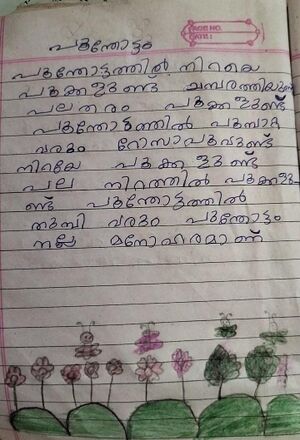 PAGE NO.
DATE:
പൂന്തോട്ടം
പൂന്തോട്ടത്തിൽ നിറയെ
പൂക്കളുണ്ട് ചമ്പരത്തിയുണ്ട്
പലതരം പൂക്കളുണ്ട്
പൂന്തോട്ടത്തിൽ പൂമ്പാറ്റ
വരും റോസാപൂവുണ്ട്
നിറയേ പൂക്കളുണ്ട്
പല നിറത്തിൽ പൂക്കളു
ണ്ട് പൂന്തോട്ടത്തിൽ
തുമ്പി വരും പൂന്തോട്ടം
നല്ല മനോഹരമാണ്